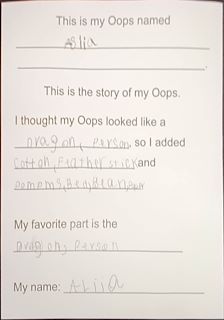 This is my Oops named
Aslia
This is the story of my Oops.
I thought my Oops looked like a
Dragon, Person, so I added
Cotton, Feather stick and
Pompoms, Bed, Bean,
My favorite part is the
Dragion, Person
My name: Aliia